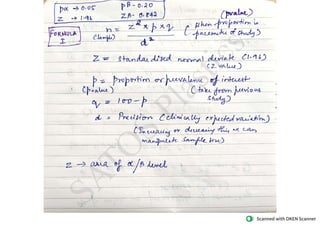 pα → 0.05 pβ - 0.20
Z → 1.96 ZA - 0.842 (pvalue)
FORMULA I n = z² × p × q (When proportion is
(Sample) d² parameter of study)
Z = Standardised normal deviate (1.96)
(Z value)
p = Proportion or prevalence of interest
(pvalue) (take from previous
q = 100 - p study)
d = Precision (clinically expected variation)
(Increasing or decreasing this we can
manipulate sample size)
Z → area of α/β level
Scanned with OKEN Scanner